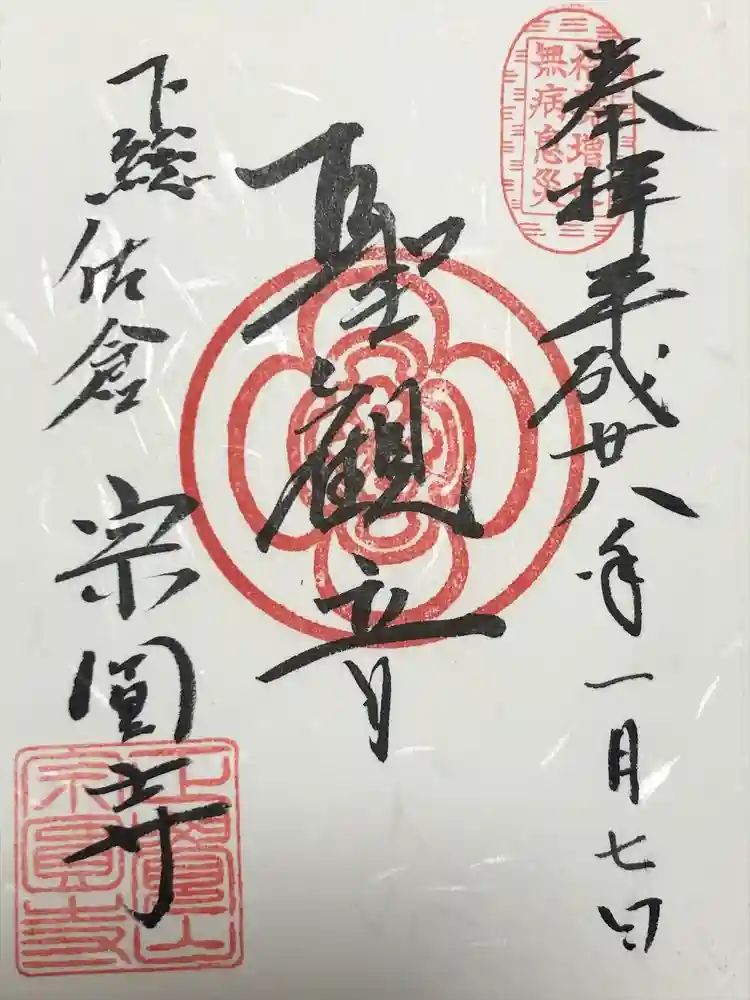 奉拝 平成廿八年一月七日
無病息災
聖観音
下総佐倉 宗圓寺
宗圓寺